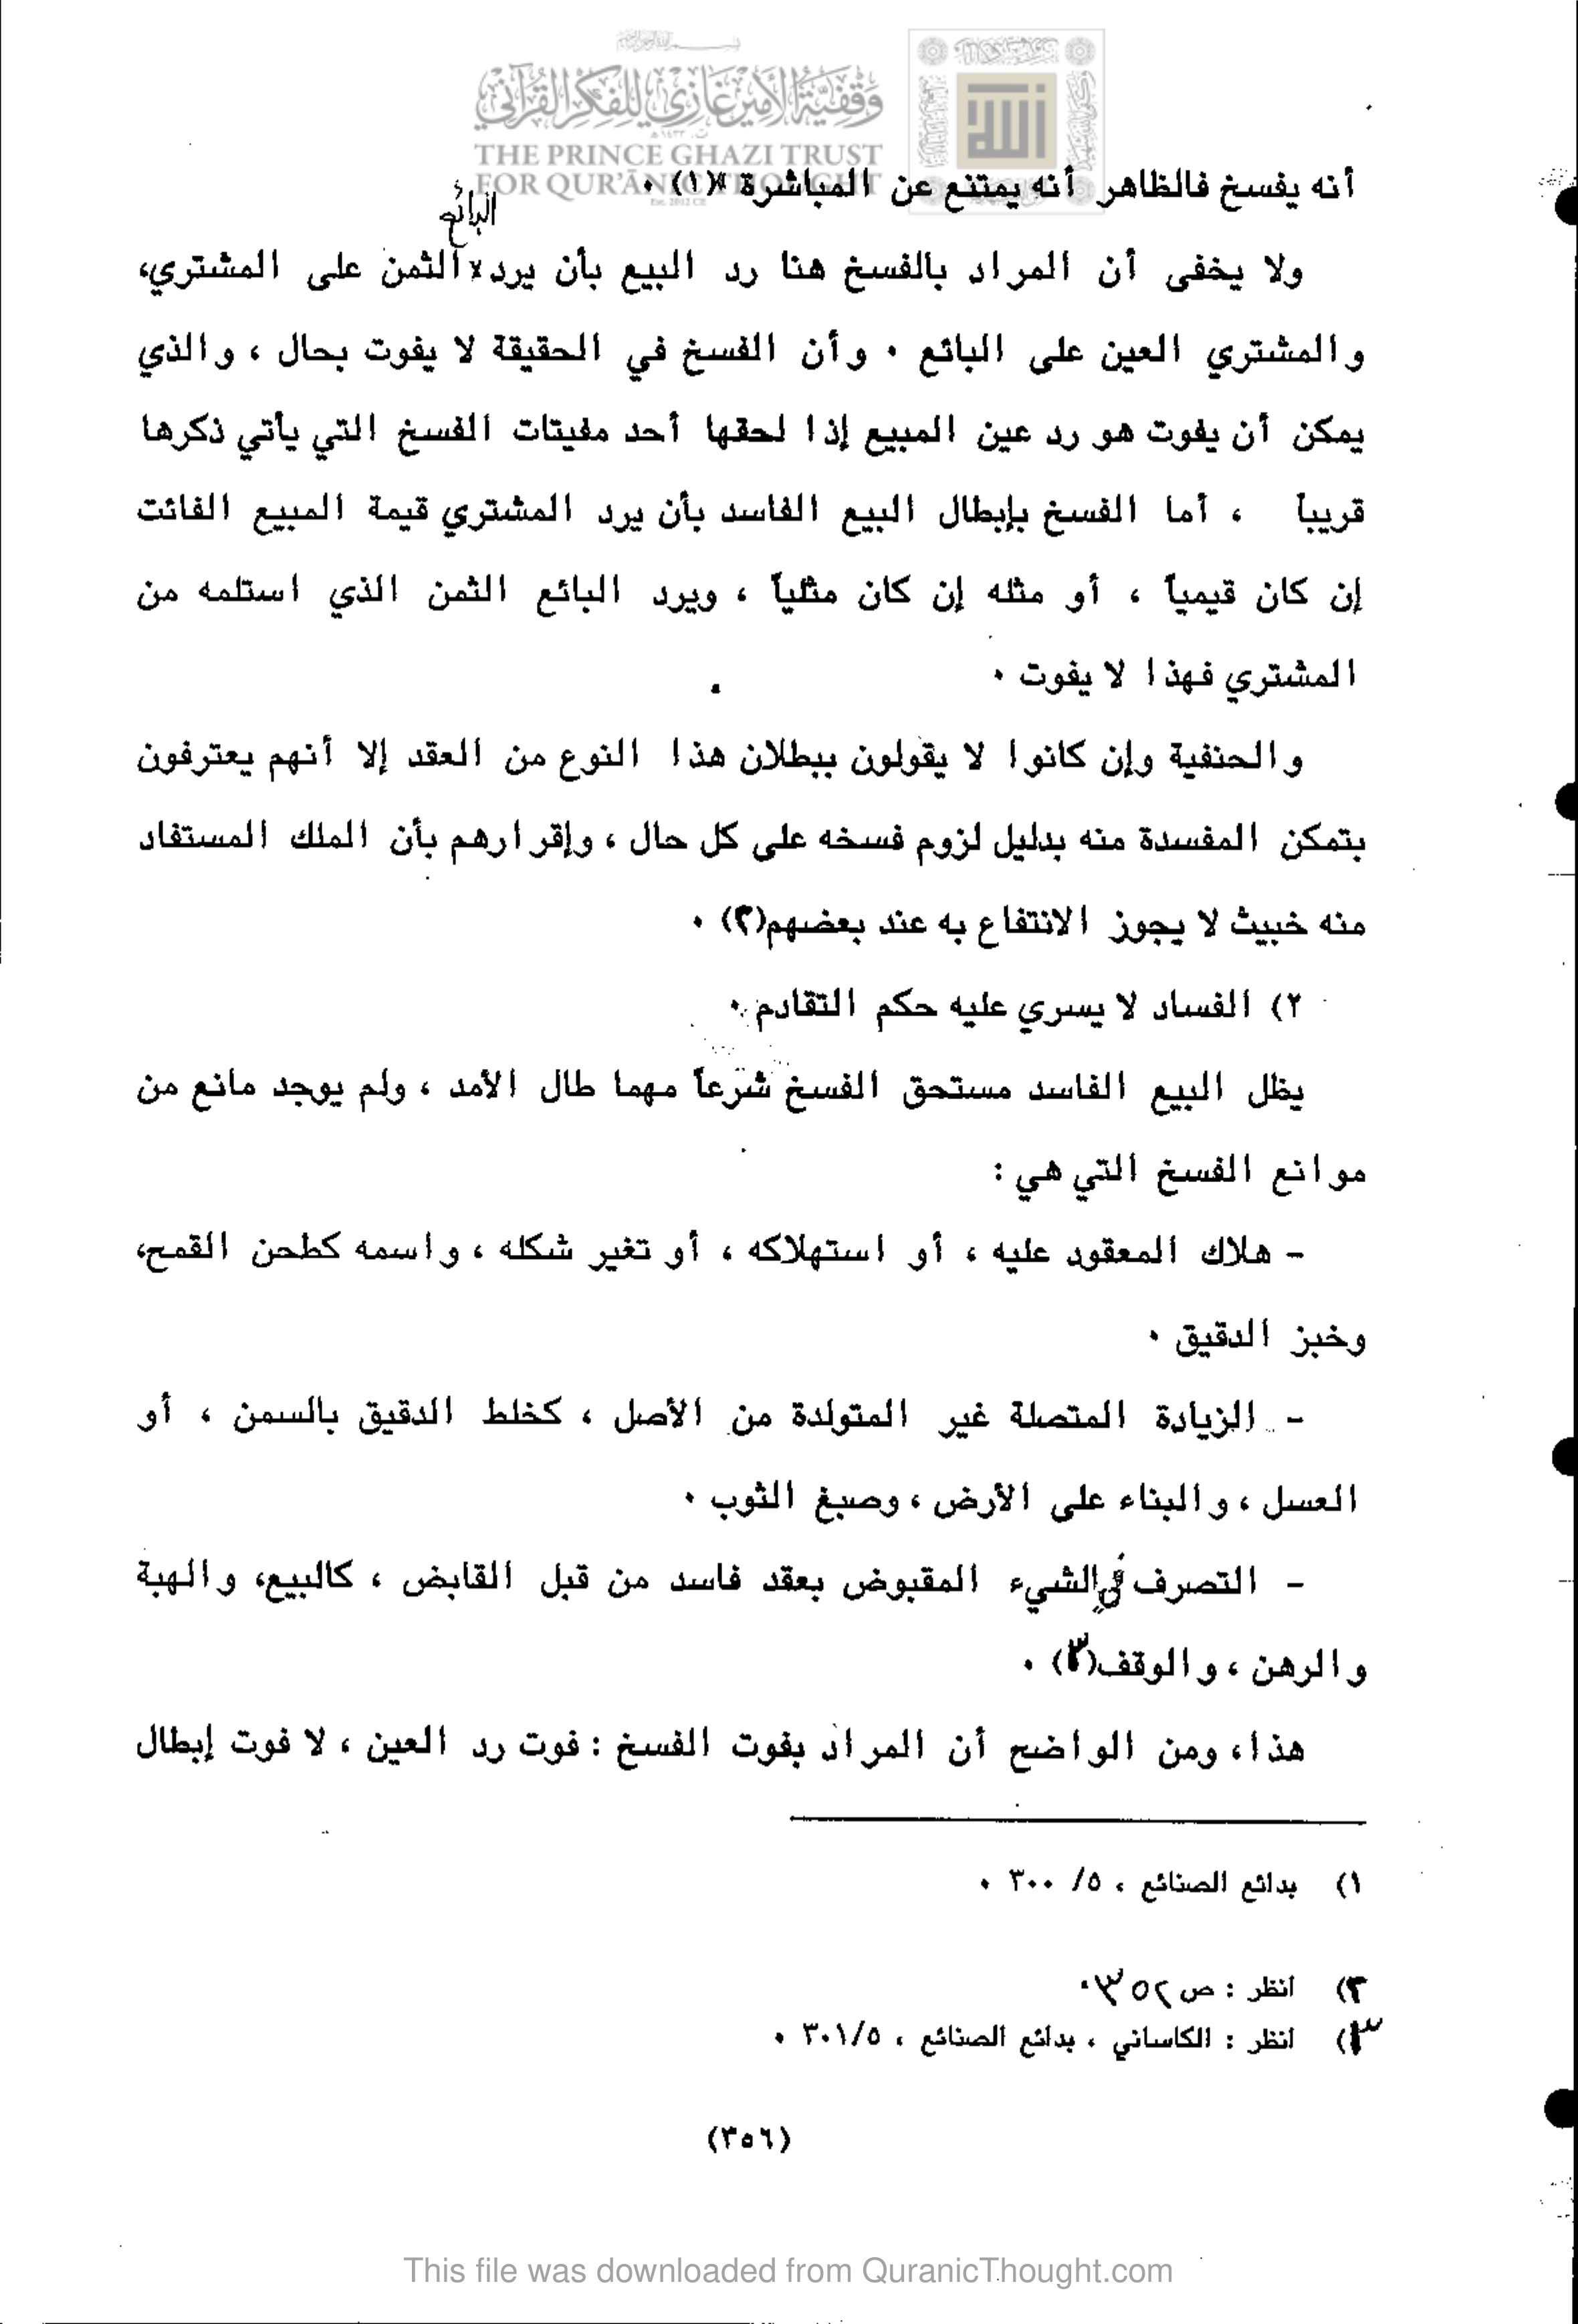 وقفية الأمير غازي للفكر القرآني
THE PRINCE GHAZI TRUST
FOR QUR'ĀNIC THOUGHT
أنه يفسخ فالظاهر أنه يمتنع عن المباشرة »(١) .
البائع
ولا يخفى أن المراد بالفسخ هنا رد البيع بأن يرد × الثمن على المشتري،
والمشتري العين على البائع . وأن الفسخ في الحقيقة لا يفوت بحال ، والذي
يمكن أن يفوت هو رد عين المبيع إذا لحقها أحد مفيتات الفسخ التي يأتي ذكرها
قريباً ، أما الفسخ بإبطال البيع الفاسد بأن يرد المشتري قيمة المبيع الفائت
إن كان قيمياً ، أو مثله إن كان مثلياً ، ويرد البائع الثمن الذي استلمه من
المشتري فهذا لا يفوت .
والحنفية وإن كانوا لا يقولون ببطلان هذا النوع من العقد إلا أنهم يعترفون
بتمكن المفسدة منه بدليل لزوم فسخه على كل حال ، وإقرارهم بأن الملك المستفاد
منه خبيث لا يجوز الانتفاع به عند بعضهم(٢) .
٢) الفساد لا يسري عليه حكم التقادم .
يظل البيع الفاسد مستحق الفسخ شرعاً مهما طال الأمد ، ولم يوجد مانع من
موانع الفسخ التي هي :
- هلاك المعقود عليه ، أو استهلاكه ، أو تغير شكله ، واسمه كطحن القمح،
وخبز الدقيق .
- الزيادة المتصلة غير المتولدة من الأصل ، كخلط الدقيق بالسمن ، أو
العسل ، والبناء على الأرض ، وصبغ الثوب .
- التصرف في الشيء المقبوض بعقد فاسد من قبل القابض ، كالبيع، والهبة
والرهن ، والوقف(٣) .
هذا، ومن الواضح أن المراد بفوت الفسخ : فوت رد العين ، لا فوت إبطال
١) بدائع الصنائع ، ٥/ ٣٠٠ .
٢) انظر : ص ٣٥٢.
٣) انظر : الكاساني ، بدائع الصنائع ، ٣٠١/٥ .
(٣٥٦)
This file was downloaded from QuranicThought.com